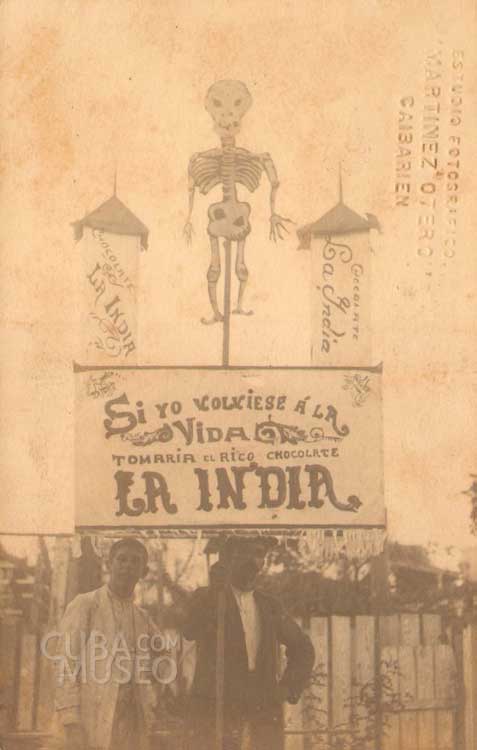 ESTUDIO FOTOGRAFICO
"MARTINEZ OTERO"
CAIBARIEN
CHOCOLATE
LA INDIA
CHOCOLATE
La India
SI YO VOLVIESE Á LA
VIDA
TOMARIA EL RICO CHOCOLATE
LA INDIA
CUBA.COM
MUSEO